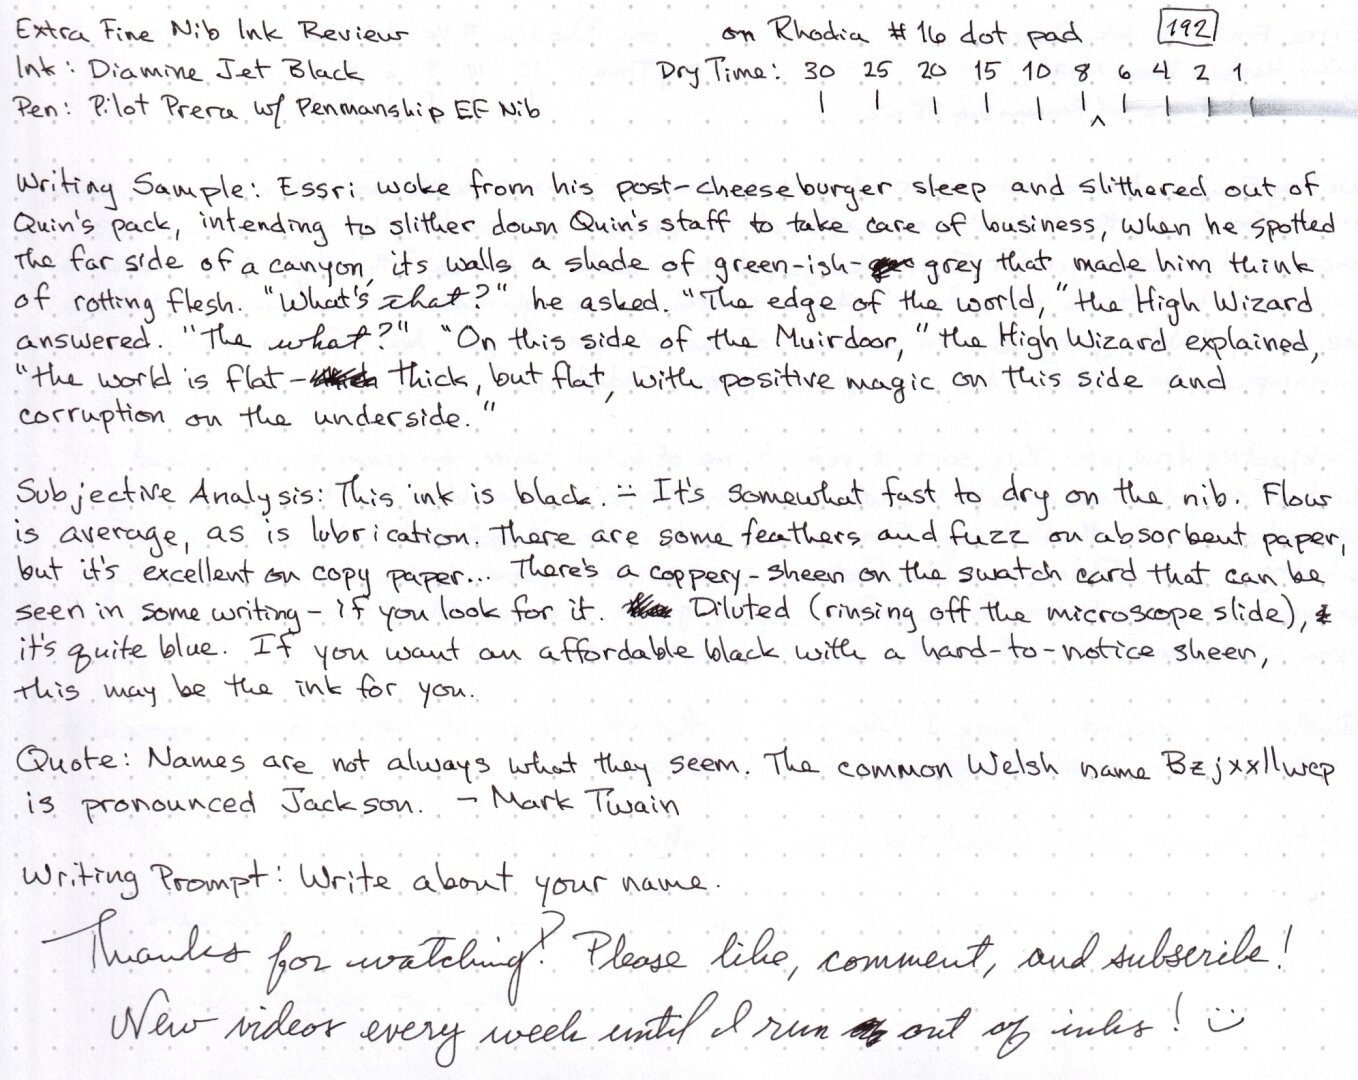 Extra Fine Nib Ink Review on Rhodia #16 dot pad 192
Ink: Diamine Jet Black Dry Time: 30 25 20 15 10 8 6 4 2 1
Pen: Pilot Prera w/ Penmanship EF Nib
Writing Sample: Essri woke from his post-cheeseburger sleep and slithered out of
Quin's pack, intending to slither down Quin's staff to take care of business, when he spotted
the far side of a canyon, its walls a shade of green-ish-grey that made him think
of rotting flesh. "What's that?" he asked. "The edge of the world," the High Wizard
answered. "The what?" "On this side of the Muirdoor," the High Wizard explained,
"the world is flat - thick, but flat, with positive magic on this side and
corruption on the underside."
Subjective Analysis: This ink is black. It's somewhat fast to dry on the nib. Flow
is average, as is lubrication. There are some feathers and fuzz on absorbent paper,
but it's excellent on copy paper... There's a coppery-sheen on the swatch card that can be
seen in some writing - if you look for it. Diluted (rinsing off the microscope slide),
it's quite blue. If you want an affordable black with a hard-to-notice sheen,
this may be the ink for you.
Quote: Names are not always what they seem. The common Welsh name Bzjxxllwcp
is pronounced Jackson. - Mark Twain
Writing Prompt: Write about your name.
Thanks for watching! Please like, comment, and subscribe!
New videos every week until I run out of inks! :)